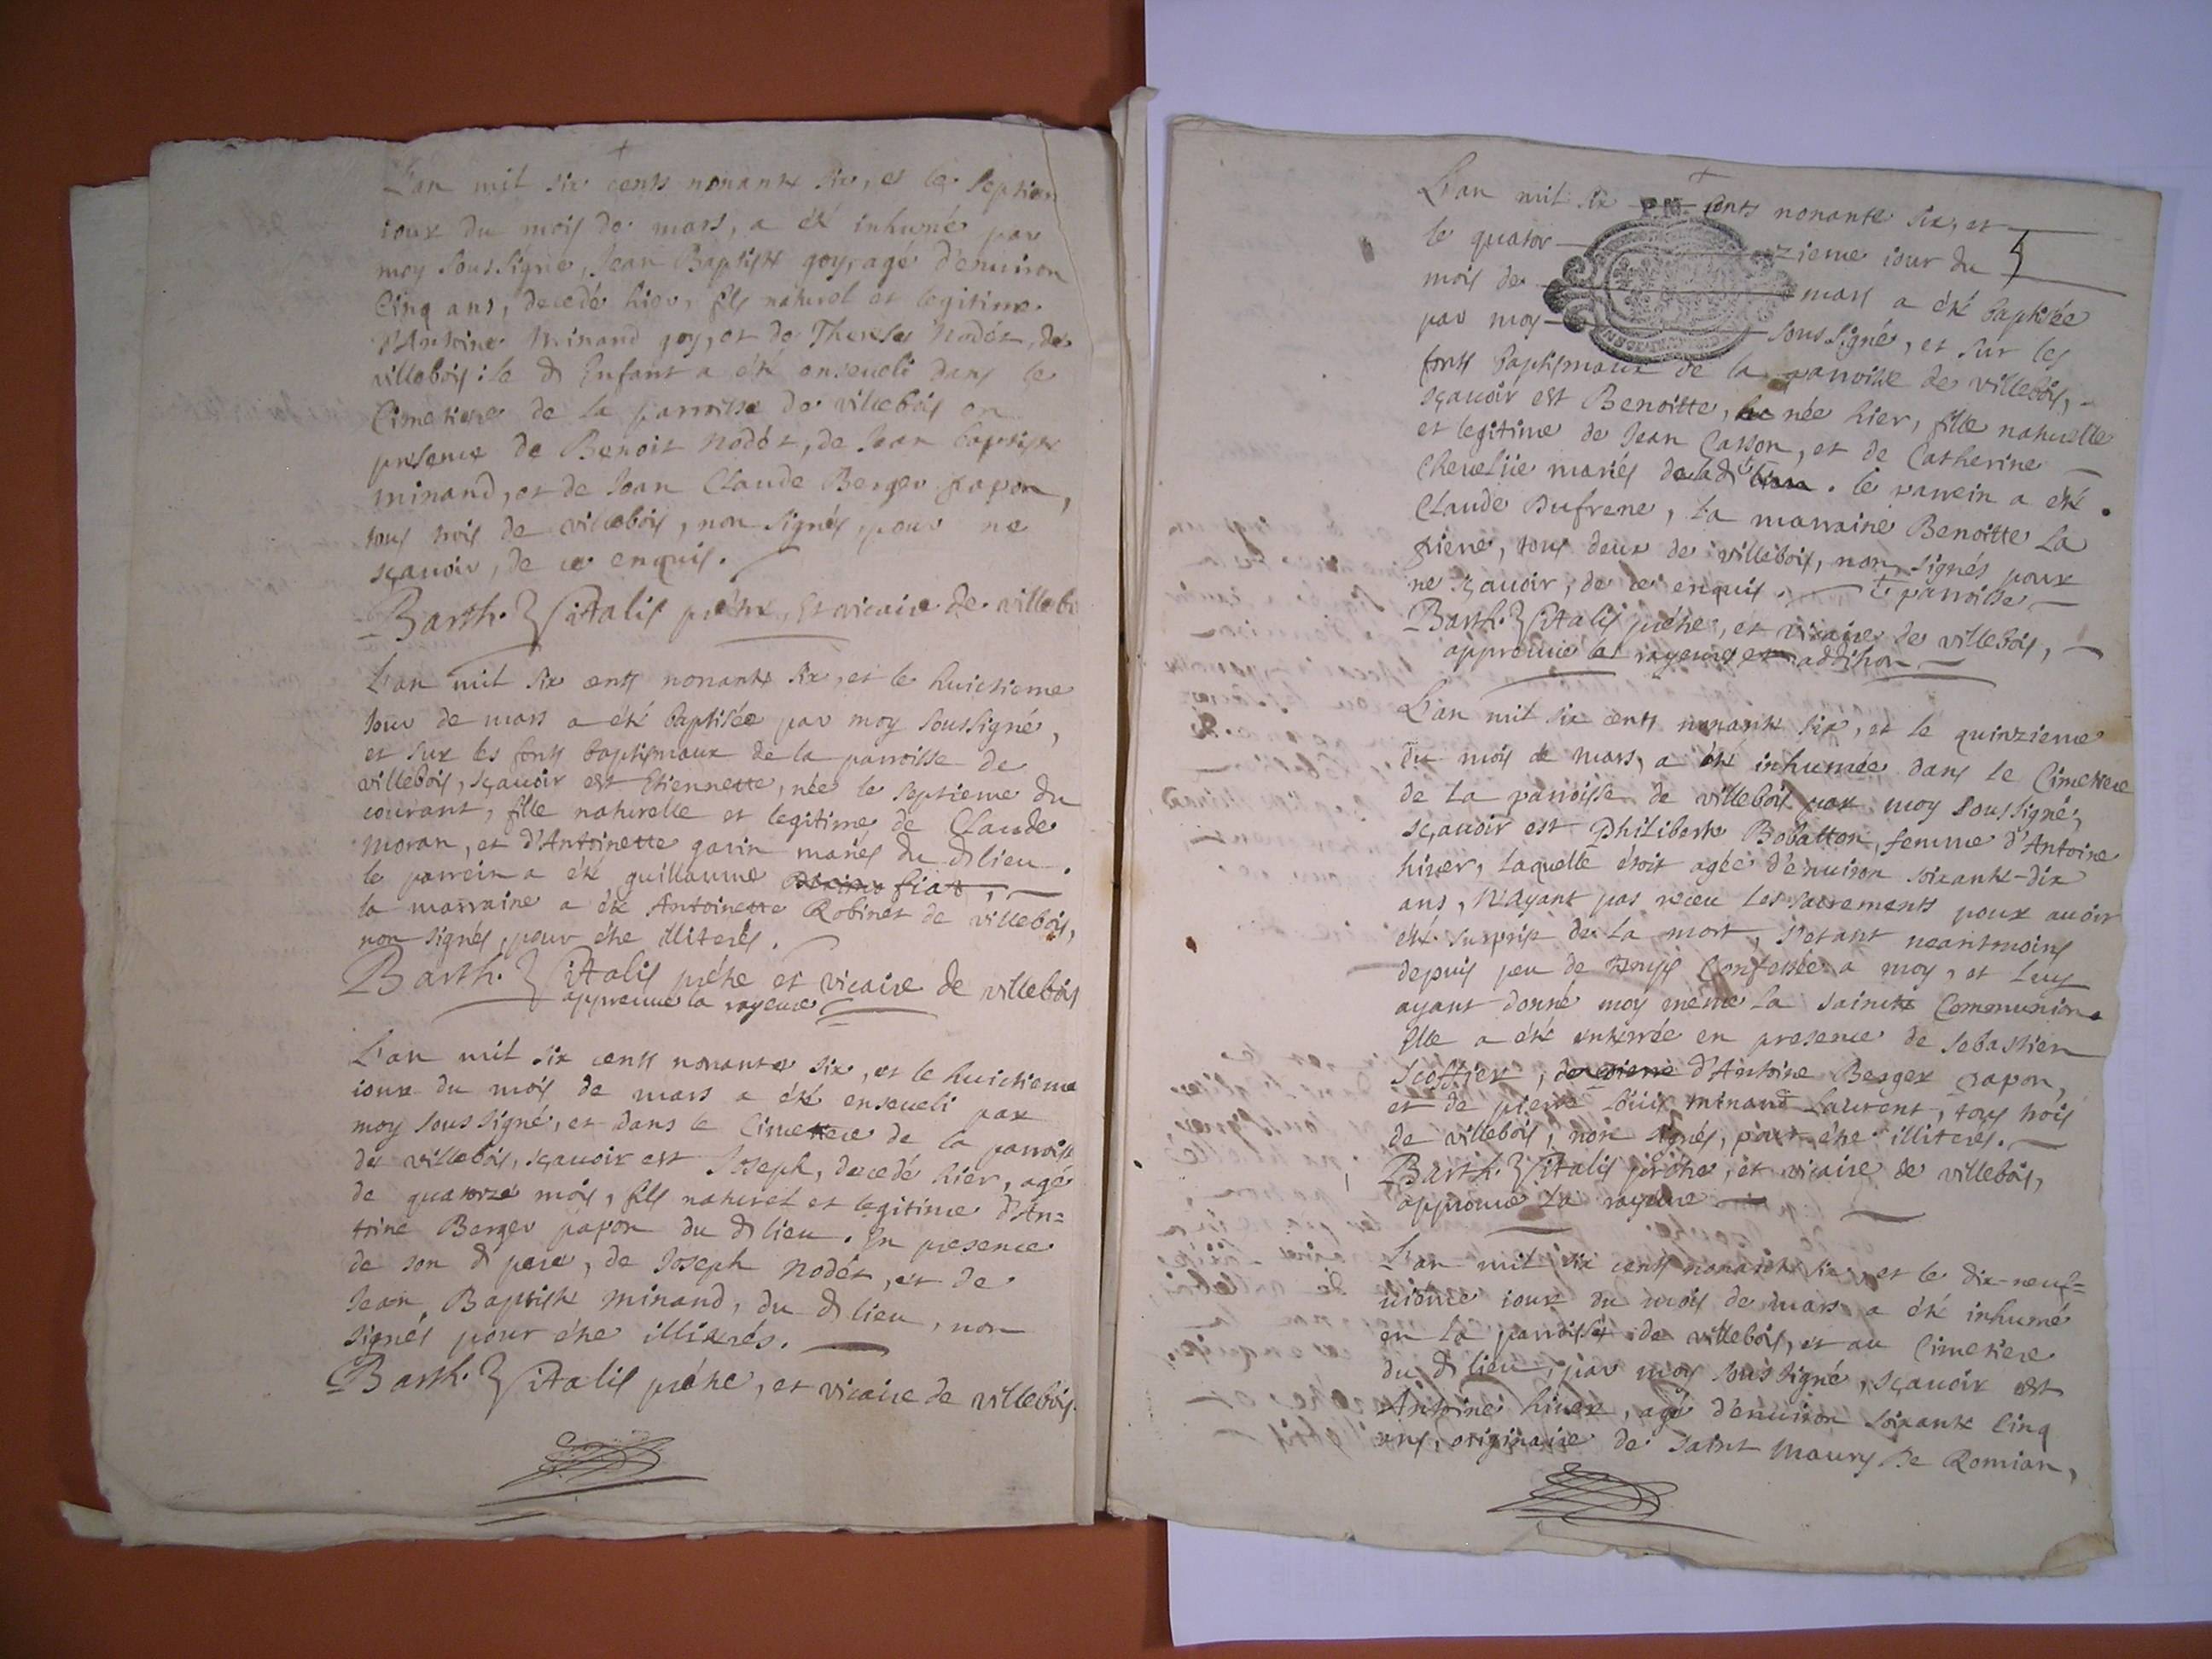 L'an mil six cents nonante six, et le septiem
iour du mois de mars, a été inhumé par
moy soussigné, Jean Baptiste goy, agé d'enuiron
Cinq ans, decedé hier, fils naturel et legitime
d'Antoine Minand goy, et de Therese Nodét, de
villebois : le d Enfant a été enseueli dans le
Cimetiere de la parroisse de villebois en
presence de Benoit Nodét, de Jean baptiste
minand, et de Jean Claude Berger papon,
tous trois de villebois, non signés, pour ne
sçauoir, de ce enquis.
Barth. Vitalis prétre, Et vicaire de villebo
L'an mil six cents nonante six, et le huictieme
iour de mars a été baptisée par moy soussigné,
et sur les fonts baptismaux de la parroisse de
villebois, sçauoir est Etiennette, née le septieme du
courant, fille naturelle et legitime de Claude
Moran, et d'Antoinette gavin mariés du d lieu.
le parrein a été guillaume fiat,
la marraine a été Antoinette Robinet de villebois,
non signés, pour étre illiterés.
Barth. Vitalis prétre et vicaire de villebois
approuue la rayeure
L'an mil six cents nonante six, et le huictieme
iour du mois de mars a été enseueli par
moy soussigné, et dans le Cimetiere de la parroisse
de villebois, sçauoir est Joseph, decedé hier, agé
de quatorze mois, fils naturel et legitime d'An=
toine Berger papon du d lieu. En presence
de son d pere, de Joseph Nodét, et de
Jean Baptiste minand, du d lieu, non
signés pour étre illiterés.
Barth. Vitalis prétre, et vicaire de villebois.
L'an mil six cents nonante six, et
le quator zieme iour du
mois de mars a été baptisée
par moy soussigné, et sur les
fonts baptismaux de la parroisse de villebois,
sçauoir est Benoitte, née hier, fille naturelle
et legitime de Jean Casson, et de Catherine
Cheuelüe mariés de la d. le parrein a été
Claude Dufrene, la marraine Benoitte La
tous deux de villebois, non signés pour
ne sçauoir, de ce enquis. + parroisse
Barth. Vitalis prétre, et vicaire de villebois,
approuue les rayeures et addition
L'an mil six cents nonante six, et le quinzieme
du mois de mars, a été inhumée dans le Cimetiere
de la parroisse de villebois par moy soussigné,
sçauoir est Philiberte Bobatton, femme d'Antoine
hiuer, laquelle étoit agée d'enuiron soixante-dix
ans, N'ayant pas receu les sacrements pour auoir
été surprise de la mort, s'etant neantmoins
depuis peu de temps Confessée a moy, et luy
ayant donné moy méme la saincte Communion.
Elle a été enterrée en presence de Sebastien
Scoffier, de pierre d'Antoine Berger papon,
et de pierre Loüis minand Laurent, tous trois
de villebois, non signés, pour étre illiterés.
Barth. Vitalis prétre, et vicaire de villebois,
approuue la rayeure
L'an mil six cents nonante six, et le dix-neuf=
uieme iour du mois de mars a été inhumé
en la parroisse de villebois, et au Cimetiere
du d lieu, par moy soussigné, sçauoir est
Antoine hiuer, agé d'enuiron soixante Cinq
ans, originaire de saint Maury de Romian,